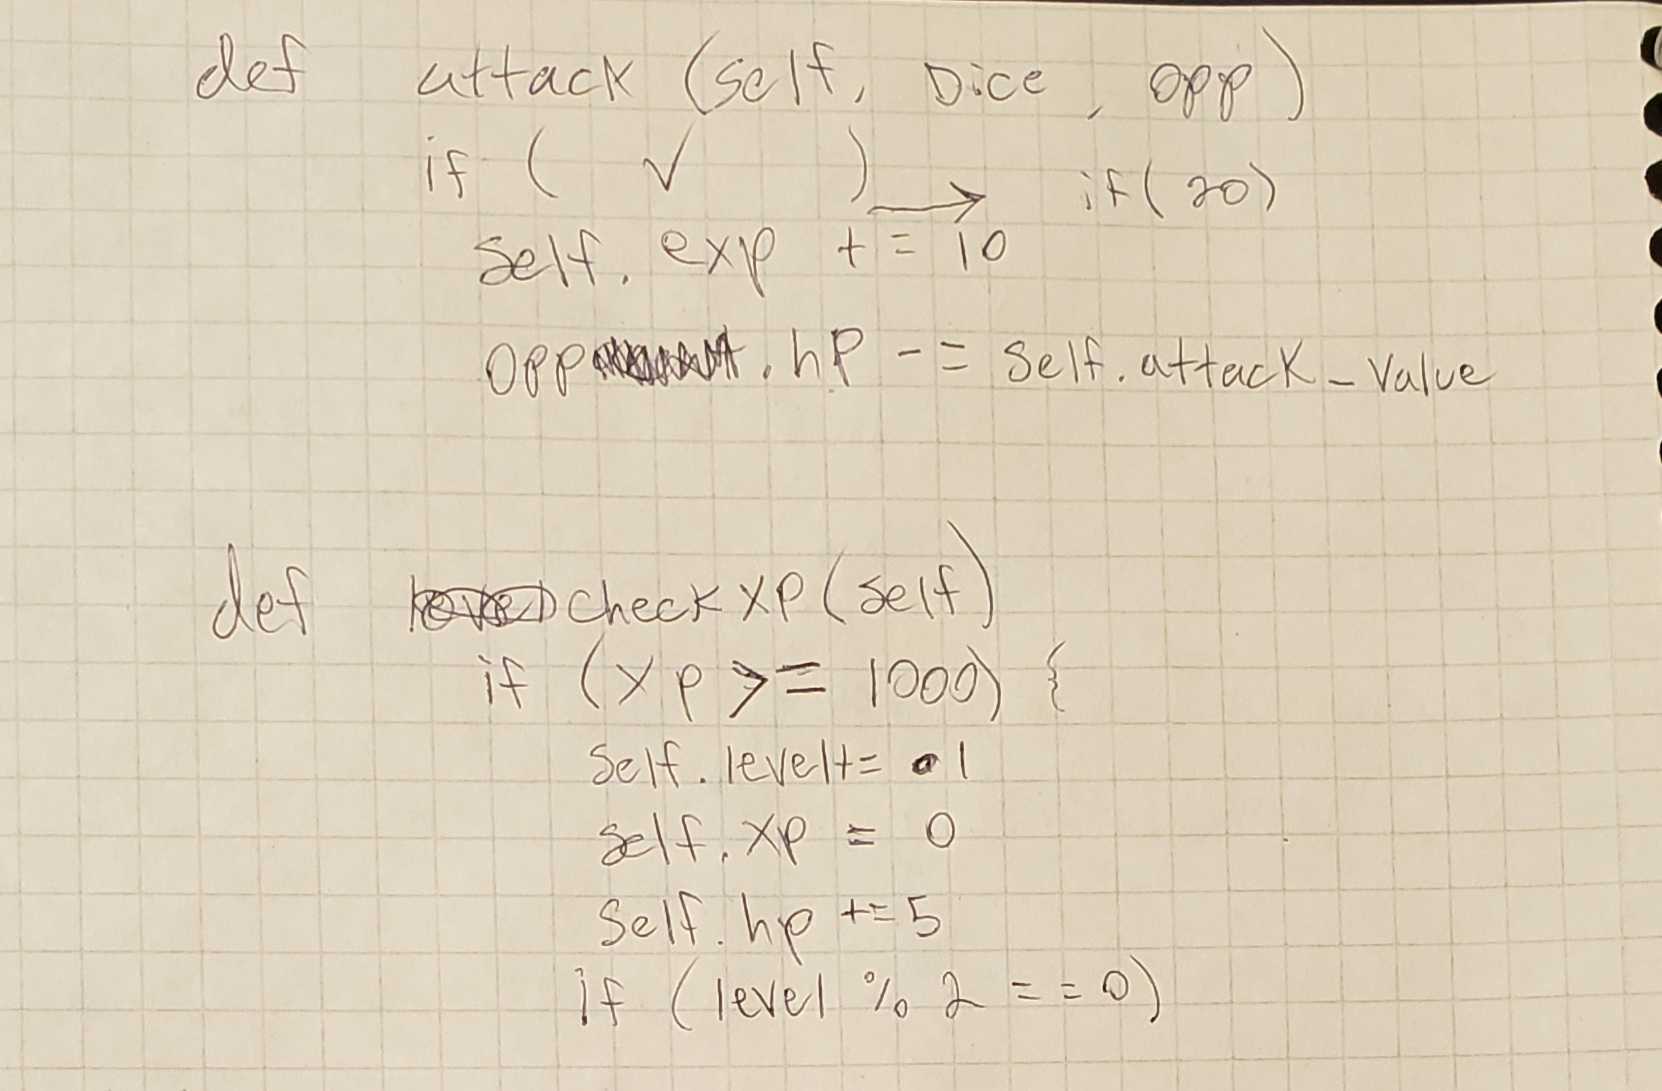 def attack (self, Dice, opp)
if ( ✓ ) → if(20)
self. exp += 10
opp.hp -= self.attack_value
def checkXP(self)
if (xp >= 1000) {
self.level+= 1
self.xp = 0
self.hp +=5
if (level % 2 == 0)